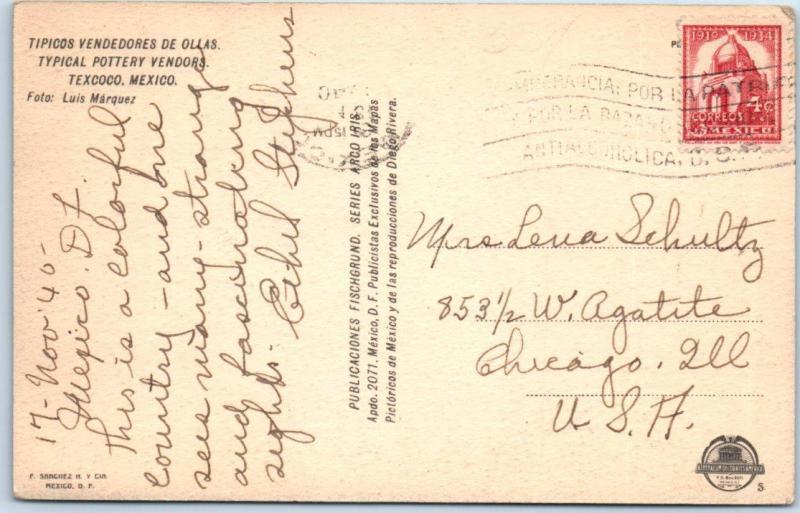 TIPICOS VENDEDORES DE OLLAS.
TYPICAL POTTERY VENDORS.
TEXCOCO, MEXICO.
Foto: Luis Márquez
17-Nov '40-
Mexico. D.F.
This is a colorful
country - and one
sees many - strange
and fascinating
sights. Ethel Stephens
F. SANCHEZ H. Y CIA.
MEXICO, D. F.
PUBLICACIONES FISCHGRUND. SERIES ARCO IRIS.
Apdo. 2071. México, D. F. Publicistas Exclusivos de los Mapas
Pictóricos de México y de las reproducciones de Diego Rivera.
POR LA PATRIA
POR LA RAZA
1910 1934
4¢
CORREOS
MEXICO
Mrs Lena Schultz
853 1/2 W. Agatite
Chicago. Ill
U. S. A.
S